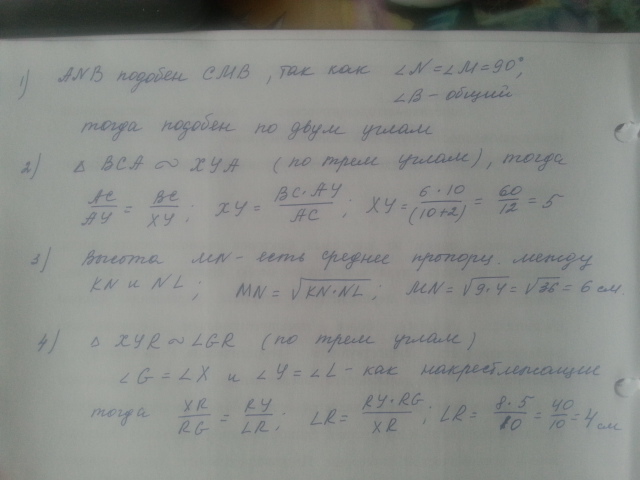 1) ANB подобен CMB, так как ∠N=∠M=90°,
∠B - общий
тогда подобен по двум углам
2) △ BCA ~ XYA (по трем углам), тогда
AC/AY = BC/XY; XY = BC·AY/AC; XY = 6·10/(10+2) = 60/12 = 5
3) Высота MN - есть среднее пропорц. между
KN и NL; MN = √KN·NL; MN = √9·4 = √36 = 6 см.
4) △ XYR ~ ∠GR (по трем углам)
∠G = ∠X и ∠Y = ∠L - как накрестлежащие
тогда XR/RG = RY/LR; LR = RY·RG/XR; LR = 8·5/10 = 40/10 = 4 см